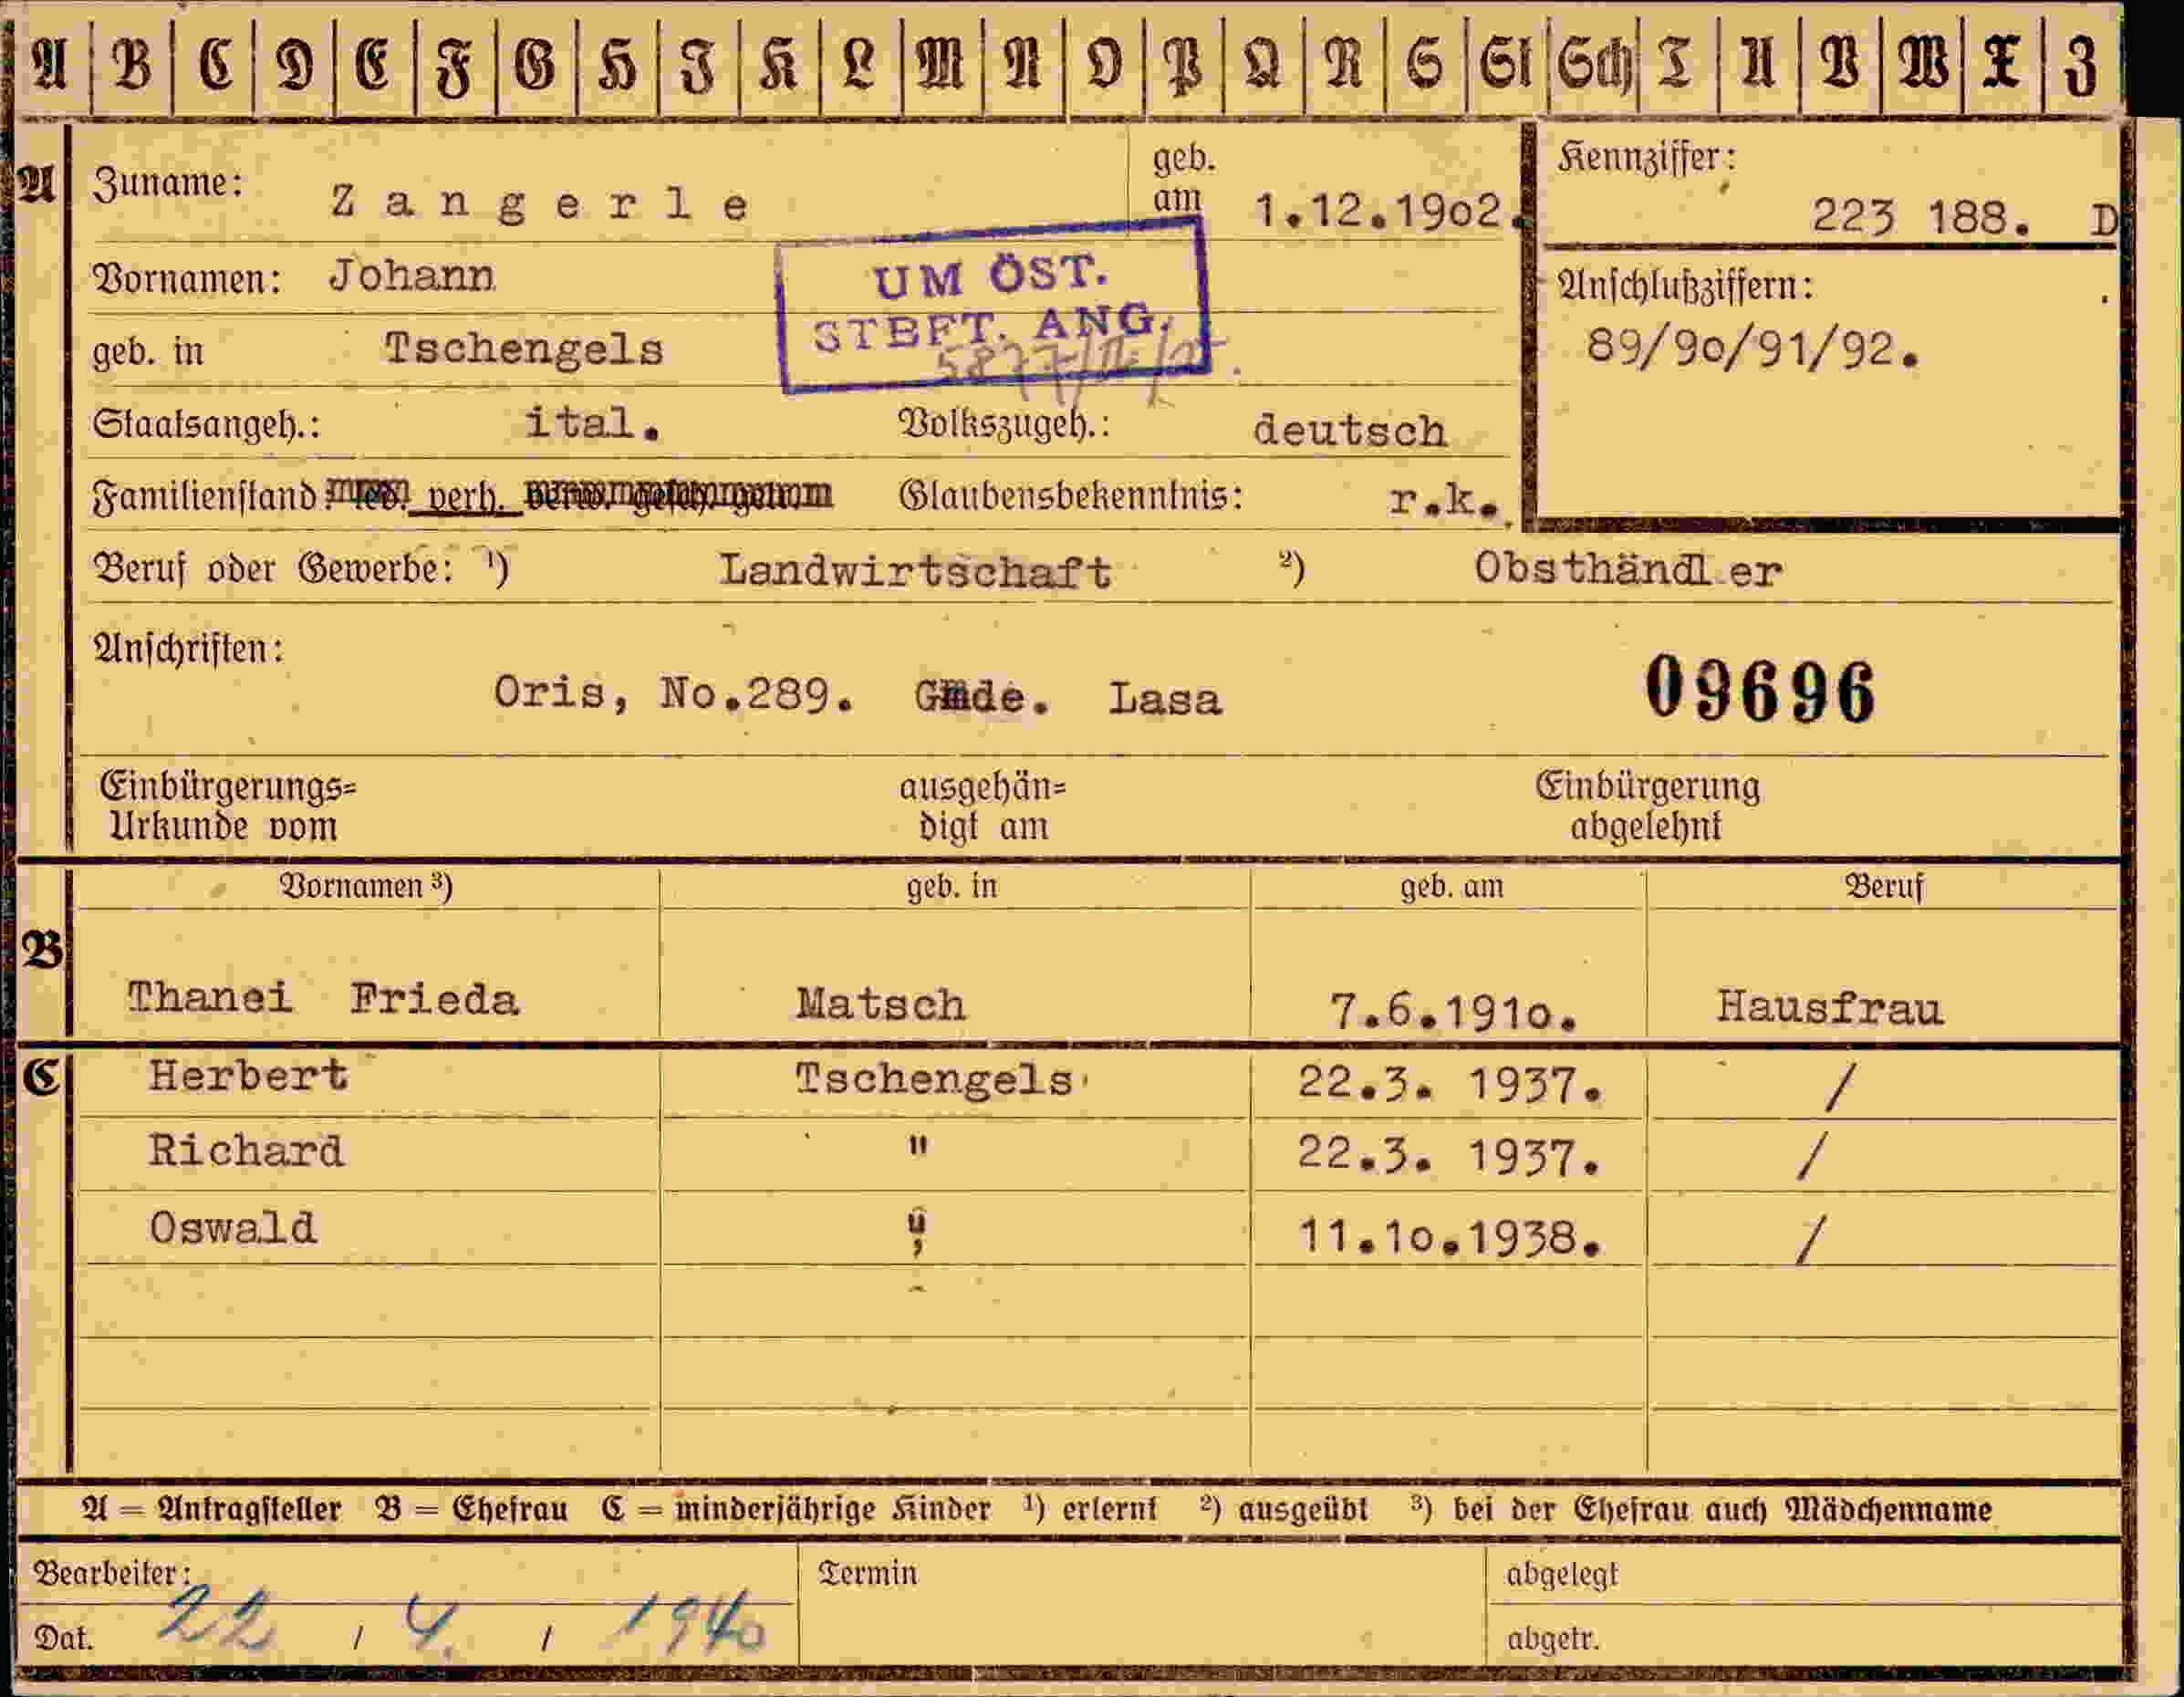 A B C D E F G H I K L M N O P Q R S St Sch T U V W X Z
A Zuname: Zangerle geb. am 1.12.1902. Kennziffer: 223 188. D
Vornamen: Johann
UM ÖST.
STBFT. ANG.
Anschlußziffern:
89/90/91/92.
geb. in Tschengels
Staatsangeh.: ital. Volkszugeh.: deutsch
Familienstand: led. verh. Glaubensbekenntnis: r.k.
Beruf oder Gewerbe: ¹) Landwirtschaft ²) Obsthändler
Anschriften:
Oris, No.289. Gmde. Lasa
09696
Einbürgerungs=
Urkunde vom
ausgehän=
digt am
Einbürgerung
abgelehnt
Vornamen ³) geb. in geb. am Beruf
B
Thanei Frieda Matsch 7.6.1910. Hausfrau
C Herbert Tschengels 22.3. 1937. /
Richard " 22.3. 1937. /
Oswald " 11.10.1938. /
A = Antragsteller B = Ehefrau C = minderjährige Kinder ¹) erlernt ²) ausgeübt ³) bei der Ehefrau auch Mädchenname
Bearbeiter: Termin abgelegt
Dat. 22 / 4. / 1940 abgetr.